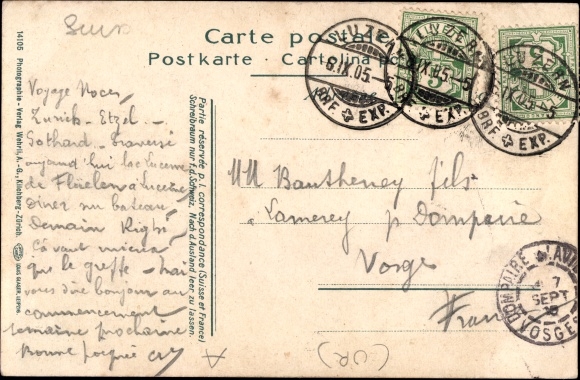 Suisse
Carte postale
Postkarte - Cartolina po
14106 Photographie-Verlag Wehrli, A.-G., Kilchberg-Zürich.
Partie réservée p. l. correspondance (Suisse et France)
Schreibraum nur f. d. Schweiz. Nach d. Ausland leer zu lassen.
LUZERN
6.IX.05.
BRF. EXP.
LUZERN
IX.05.-5
BRF. EXP.
LUZERN
IX.05.
BRF. EXP.
5
5
Voyage Noces
Zurich - Etzel -
Gothard - Traversé
aujourd'hui lac Lucerne
de Fluelen à Lucerne
diner au bateau
Demain Righi
Ca vaut mieux
que le greffe -
vous dire bonjour au
commencement
semaine prochaine
Bonne
MM Bautheney fils
Lamerey p Dompaire
Vosges
France
DOMPAIRE LAVIÉVILLE
7
SEPT
05
VOSGES
(UR)
A